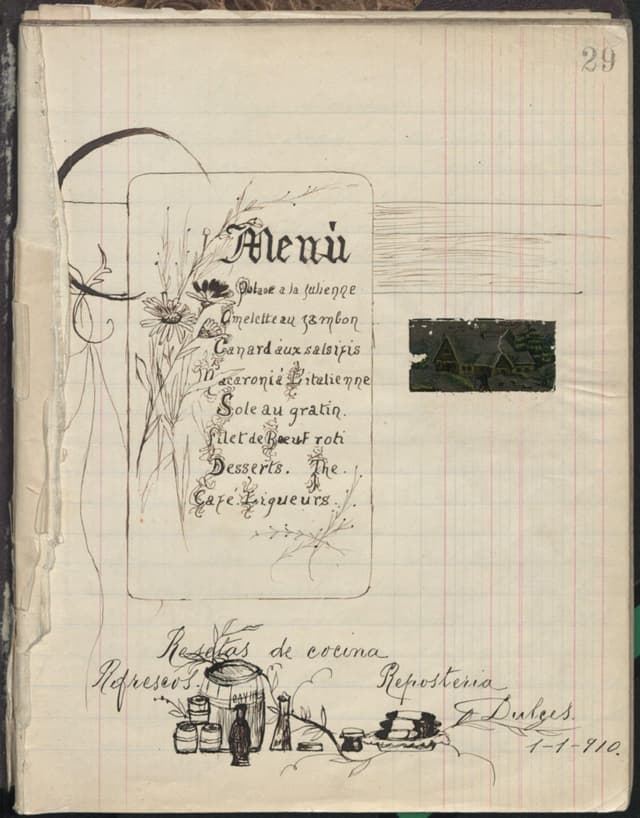 29
Menù
Potage a la Julienne
Omelette au jambon
Canard aux salsifis
Macaroni à L'italienne
Sole au gratin.
Filet de Bœuf roti
Desserts. The.
Café. Liqueurs.
Resetas de cocina
Refrescos. Reposteria
y Dulces.
1-1-910.